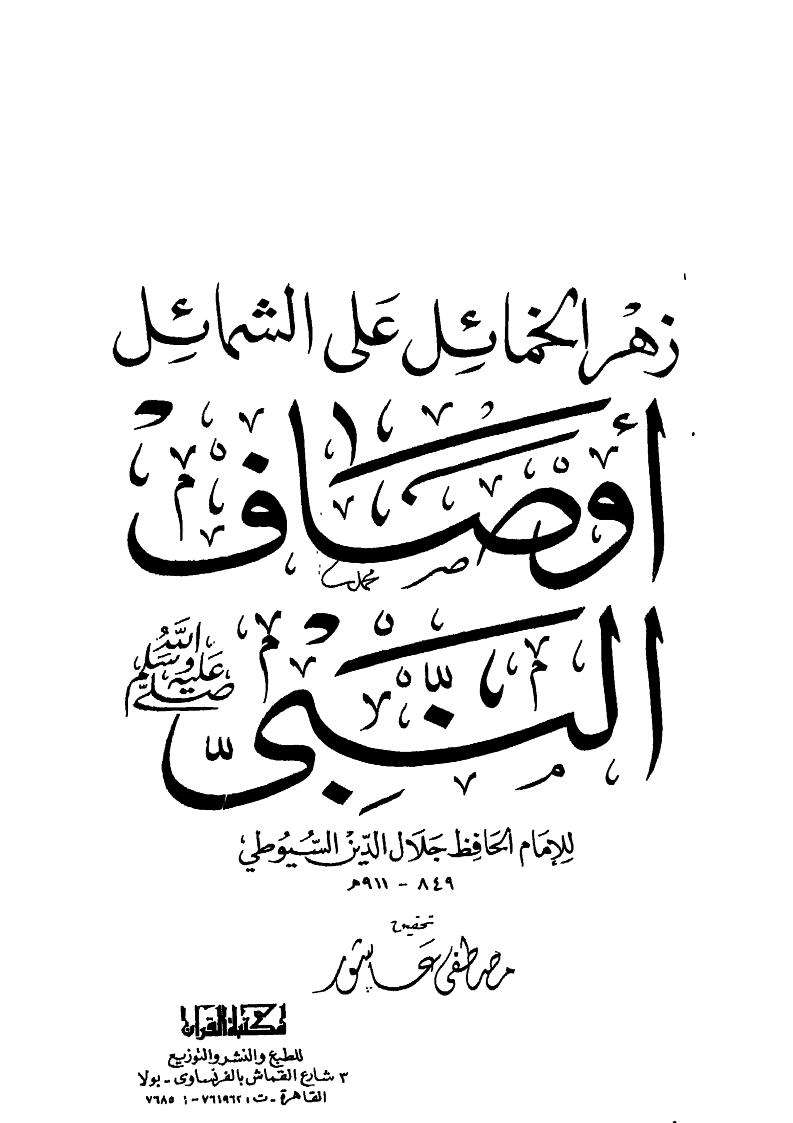 زهر الخمائل على الشمائل
أوصاف
النبي
صلى الله عليه وسلم
للإمام الحافظ جلال الدين السيوطي
٨٤٩ - ٩١١ هـ
تحقيق
مصطفى عاشور
مكتبة القرآن
للطبع والنشر والتوزيع
٣ شارع القماش بالفرنساوى - بولا
القاهرة - ت: ٧٦١٩٦٢ -